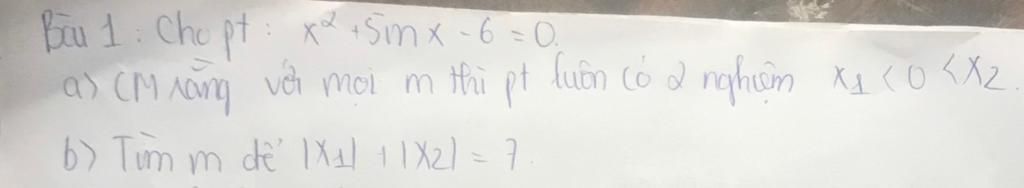 Bài 1: Cho pt: x² + 5mx - 6 = 0.
a) CM rằng với mọi m thì pt luôn có 2 nghiệm x1 < 0 < x2.
b) Tìm m để |x1| + |x2| = 7.